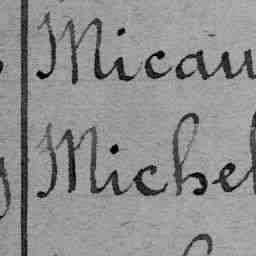 Micau
Michel